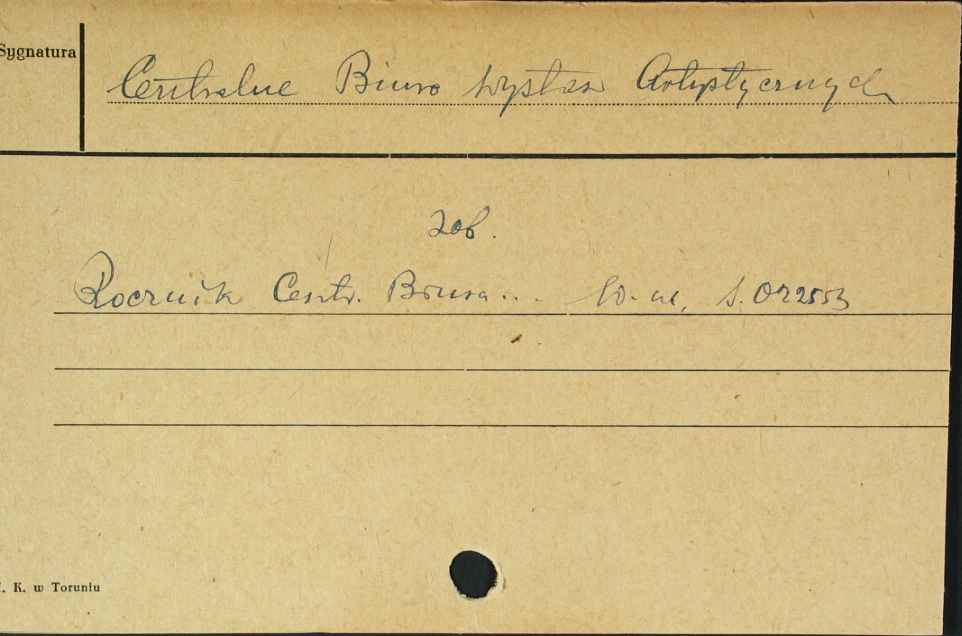 Sygnatura
Centralne Biuro Wystaw Artystycznych
zob.
Rocznik Centr. Biura...
. K. w Toruniu